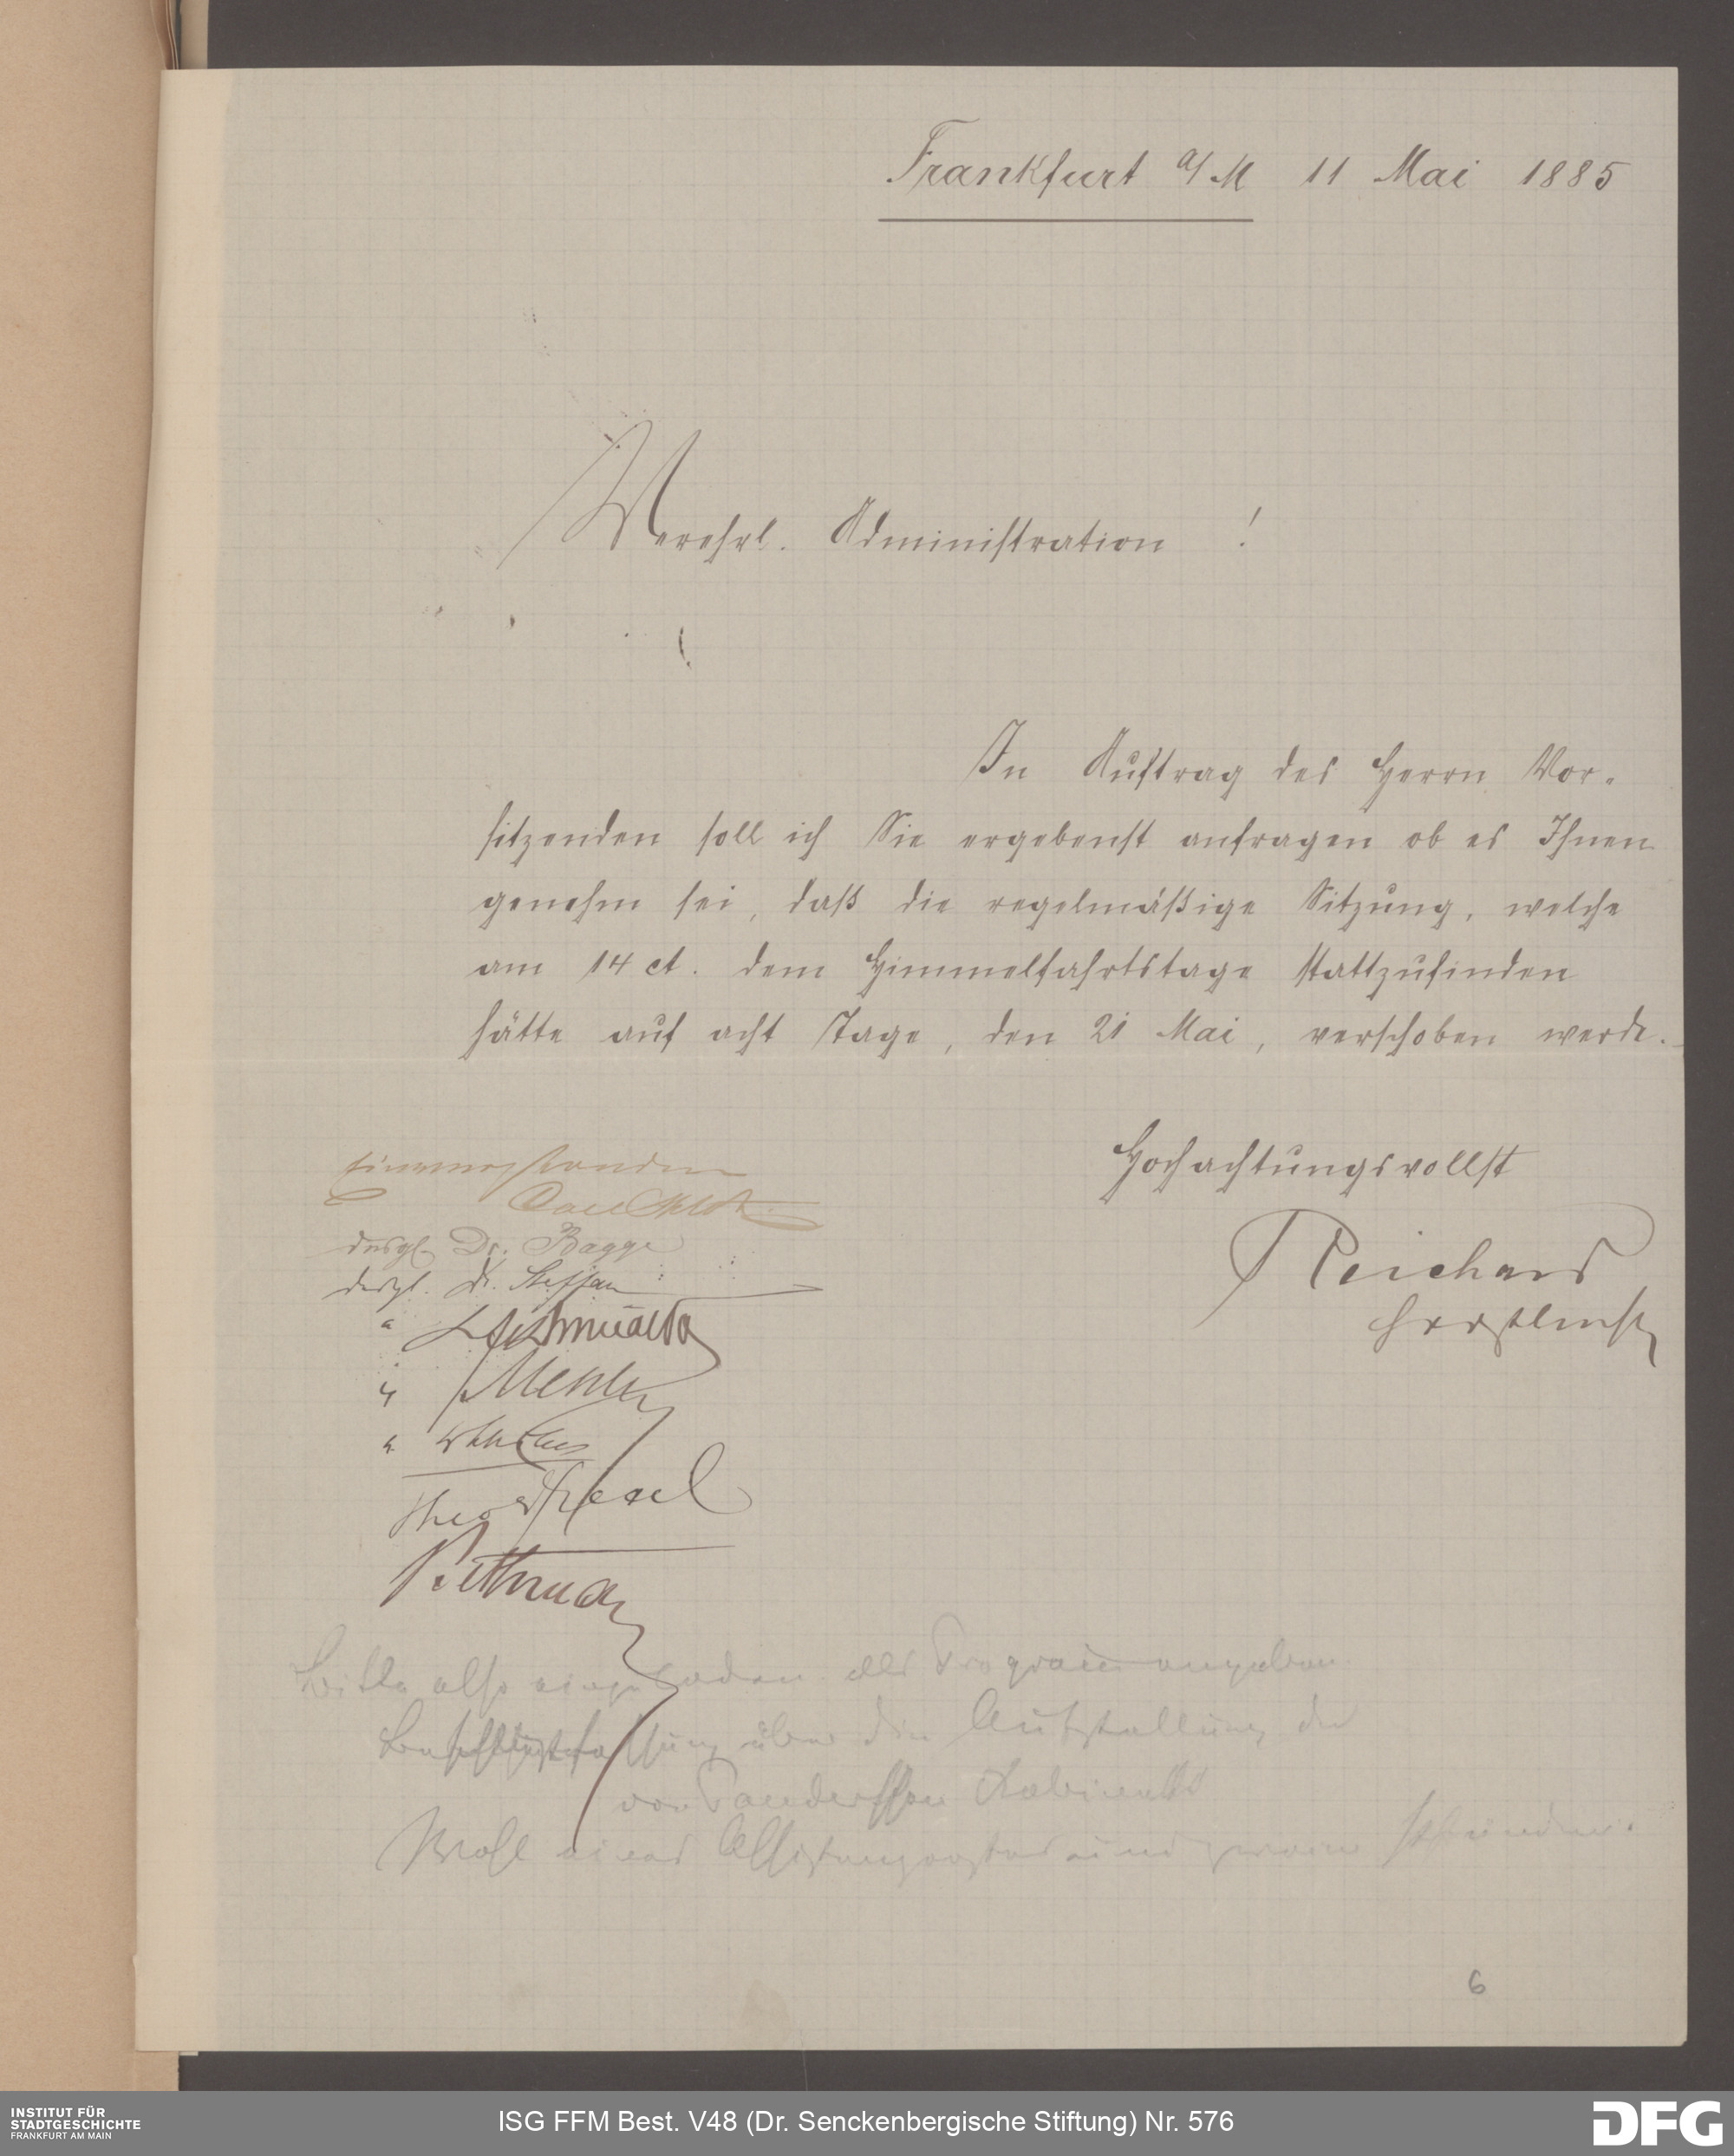 Frankfurt a/M 11 Mai 1885
Verehrl. Administration !
In Auftrag des Herrn Vor-
sitzenden soll ich Sie ergebenst anfragen ob es Ihnen
genehm sei, daß die regelmäßige Sitzung, welche
am 14 ct. dem Himmelfahrtstage stattzufinden
hätte auf acht Tage, den 21 Mai, verschoben werde.
Hochachtungsvollst
Einverstanden
Reichard
desgl. Dr. Bagge
desgl. Dr. Steffan
"
" Mehler
"
Theo
Bitte also einzuladen als angeben
Beschlußfassung über die Aufstellung der
von
Wahl eines Assistenzarztes und zweier
6
INSTITUT FÜR
STADTGESCHICHTE
FRANKFURT AM MAIN
ISG FFM Best. V48 (Dr. Senckenbergische Stiftung) Nr. 576
DFG